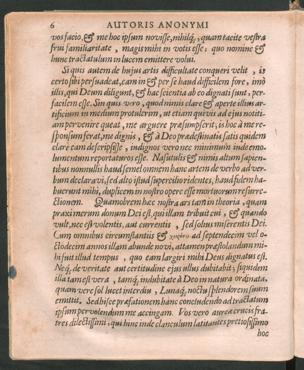 6 AUTORIS ANONYMI
vos facio, & me hoc ipsum novisse, nihilq́, quam tacite vestra
frui familiaritate, magis mihi in votis esse: quo nomine &
hunc tractatulum in lucem emittere volui.
Si quis autem de hujus artis difficultate conqueri velit, is
certo sibi persuadeat, eam in & per se haud difficilem fore, imò
illis, qui Deum diligunt, & hac scientia ab eo dignati sunt, per-
facilem esse. Sin quis vero, quod nimis clare & aperte illius ar-
tificium in medium protulerim, ut etiam quivis ad ejus notiti-
am pervenire queat, me arguere præsumpserit, is hoc à me re-
sponsum ferat, me dignis, & à Deo prædestinatis satis quidem
clare eam descripsisse, indignos vero nec minimum inde emo-
lumentum reportaturos esse. Nasutulis & nimis altum sapien-
tibus nonnullis haud semel omnem hanc artem de verbo ad ver-
bum declaravi, sed alto istud supercilio ridentes, haud fidem ha-
buerunt mihi, duplicem in nostro opere esse mortuorum resurre-
ctionem. Quamobrem hæc nostra ars tam in theoria, quam
praxi merum donum Dei est, qui illam tribuit cui, & quando
vult, nec est volentis, aut currentis, sed solus miserentis Dei.
Cum omnibus circumstantiis & ad septendecim vel o-
ctodecim annos illam abunde novi, attamen præstolandum mi-
hi fuit illud tempus, quo eam largiri mihi Deus dignatus est.
Neq́, de veritate aut certitudine ejus ullus dubitabit; siquidem
illa tam est vera, tamq́, indubitate à Deo in natura ordinata,
quam vere sol lucet interdiu, Lunaq́, noctu splendorem suum
emittit. Sed hisce præfationem hanc concludendo ad tractatum
ipsum pervolendum me accingam. Vos vero aureæ crucis fra-
tres dilectissimi, qui hinc inde clanculum latitantes pretiosissimo
hoc